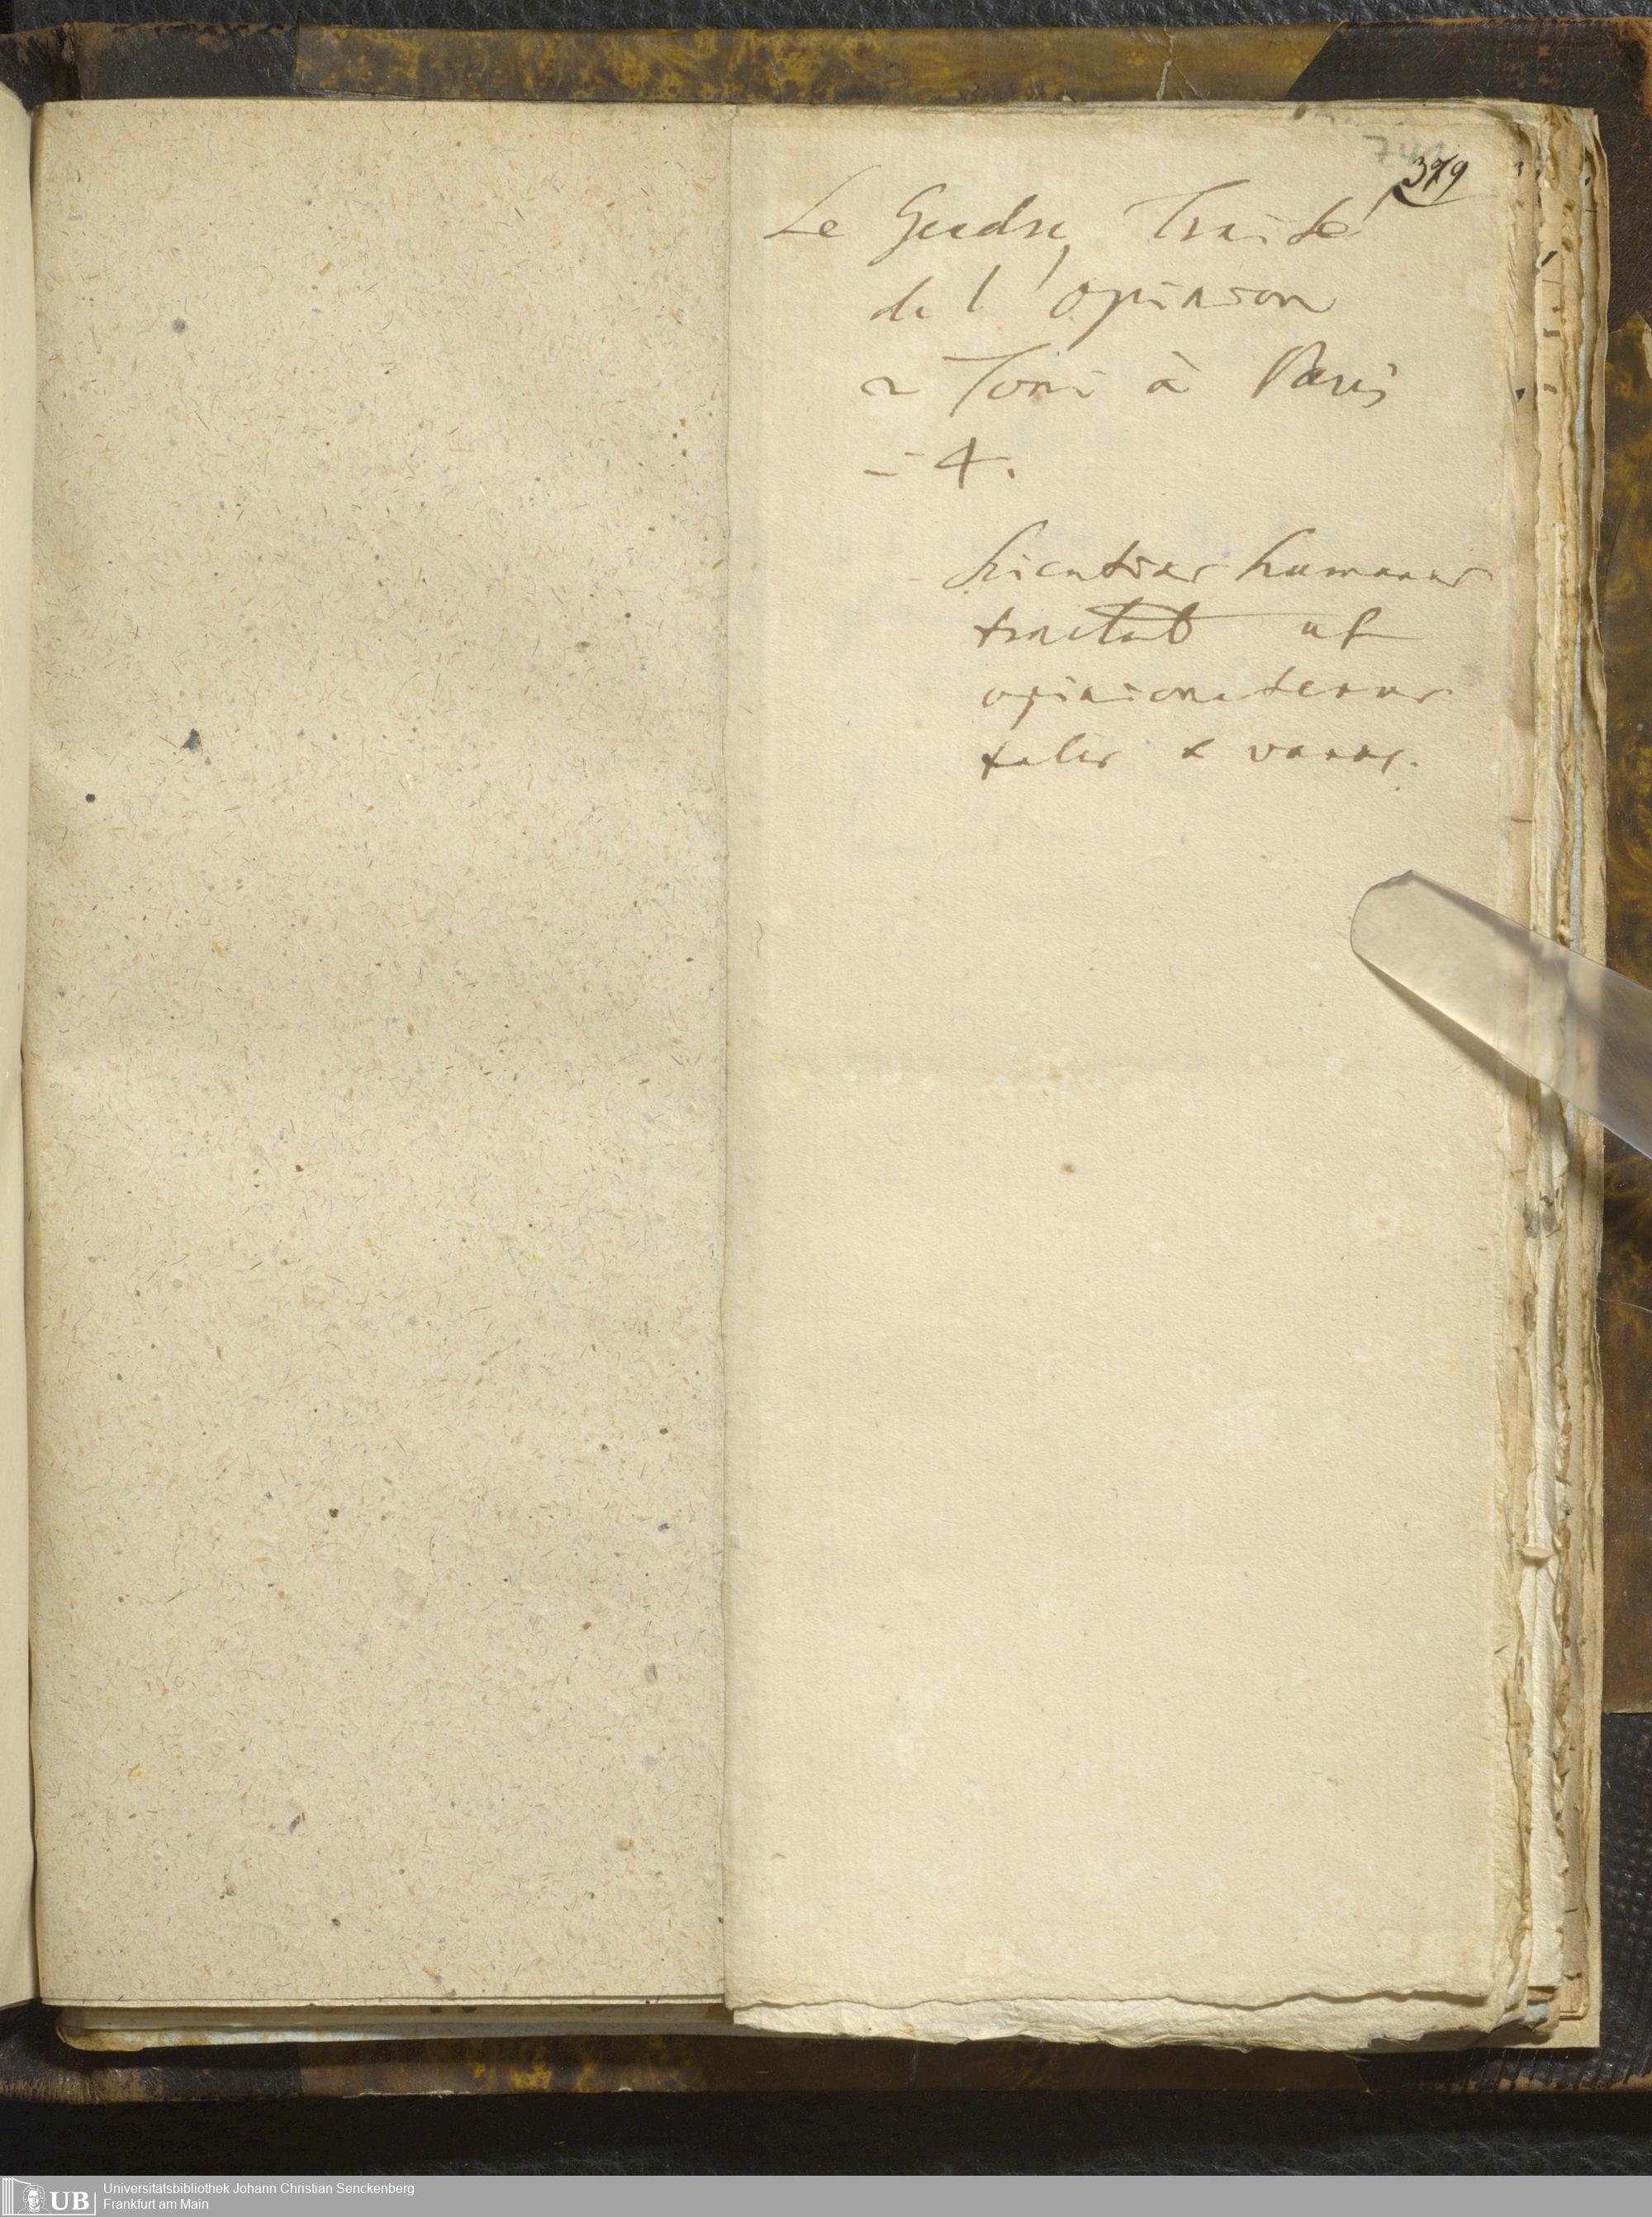 379
Le Gendre Traité
de l'opinion
2 Tomi à Paris
in 4.
Scientias humanas
tractat ut
opinionates
tales & vanas.
Universitätsbibliothek Johann Christian Senckenberg
Frankfurt am Main
UB